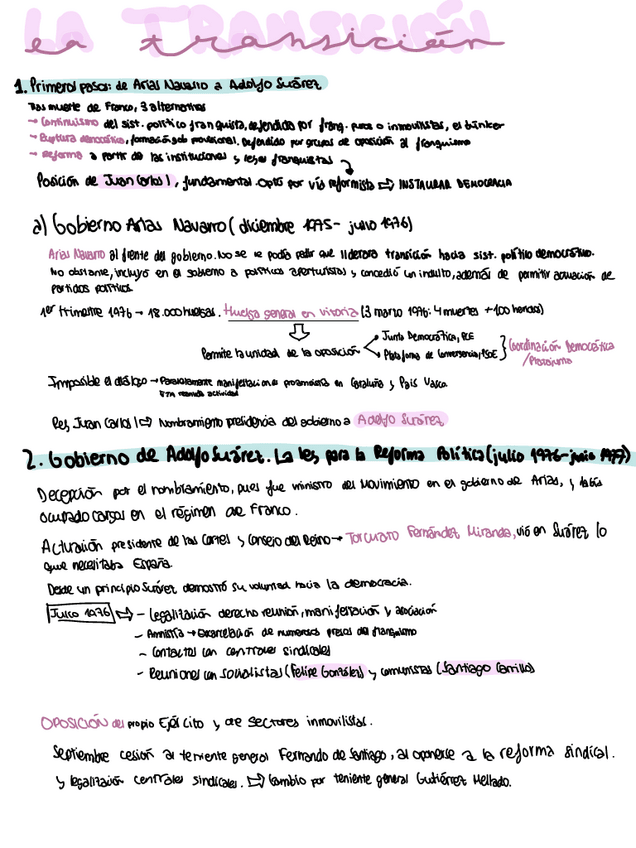 LA TRANSICIÓN
la transición
1. Primeros pasos: de Arias Navarro a Adolfo Suárez
Tras muerte de Franco, 3 alternativas
→ Continuismo del sist. político franquista, defendido por franq. puros o inmovilistas, el búnker
→ Ruptura democrática, formación gob provisional. Defendido por grupos de oposición al franquismo
→ Reforma a partir de las instituciones y leyes franquistas
Posición de Juan Carlos I, fundamental. Optó por vía reformista ⇨ INSTAURAR DEMOCRACIA
a) Gobierno Arias Navarro (diciembre 1975- julio 1976)
Arias Navarro al frente del gobierno. No se le podía pedir que liderara transición hacia sist. político democrático.
No obstante, incluyó en el gobierno a políticos aperturistas y concedió un indulto, además de permitir actuación de
partidos políticos.
1er trimestre 1976 → 18.000 huelgas. Huelga general en Vitoria (3 marzo 1976: 4 muertes +100 heridos)
Permite la unidad de la oposición
Junta Democrática, PCE
Plataforma de Convergencia, PSOE
Coordinación Democrática
/Platajunta
Imposible el diálogo → Paralelamente manifestaciones proamnistía en Cataluña y País Vasco
ETA reanuda actividad
Rey Juan Carlos I ⇨ Nombramiento presidencia del gobierno a Adolfo Suárez
2. Gobierno de Adolfo Suárez. La ley para la Reforma Política (julio 1976-junio 1977)
Decepción por el nombramiento, pues fue ministro del Movimiento en el gobierno de Arias, y había
ocupado cargos en el régimen de Franco.
Actuación presidente de las Cortes y Consejo del Reino → Torcuato Fernández Miranda, vió en Suárez lo
que necesitaba España.
Desde un principio Suárez demostró su voluntad hacia la democracia.
Julio 1976 ⇨ - Legalización derecho reunión, manifestación y asociación
- Amnistía → Excarcelación de numerosos presos del franquismo
- Contactos con centrales sindicales
- Reuniones con socialistas (Felipe González) y comunistas (Santiago Carrillo)
OPOSICIÓN del propio Ejército y de sectores inmovilistas.
Septiembre cesión al teniente general Fernando de Santiago, al oponerse a la reforma sindical.
y legalización centrales sindicales. ⇨ Cambio por teniente general Gutiérrez Mellado.